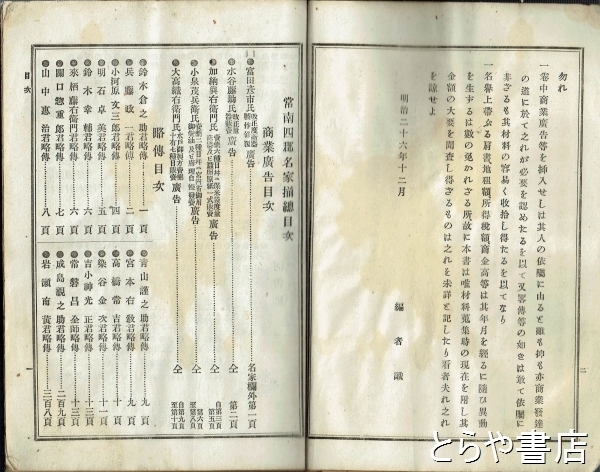 勿れ
一卷中商業廣告等を挿入せしは其人の依囑に由ると雖も抑も亦商業發達
の道に於て之れが必要を認めたるを以て又畧傳等の如きは敢て依囑に
非ざるも其材料の容易く收拾し得たるを以てなり
一名譽上帶ぶる肩書地租額所得稅額商金高等は其年月を經るに隨ひ異動
を生ずるは數の免かれざる所故に本書は唯材料蒐集時の現在を用し其
金額の大要を調査し得ざるものは之れを未詳と記したり看者夫れ之れ
を諒せよ
明治二十六年十二月
編者識
二
常南四郡名家揃總目次
商業廣告目次
富田彥市氏 廣告 名家欄外第一頁
水谷藤助氏 廣告 仝 第二頁
加納與右衛門氏 廣告 仝 自第三頁 至第五頁
小泉茂兵衛氏 廣告 仝 第六頁 至第八頁
大高織右衛門氏 廣告 仝 自第九頁 至第十頁
略傳目次
鈴木倉之助君略傳 一頁
兵藤政一君略傳 二頁
小河原文三郎君略傳 四頁
明石卓美君略傳 五頁
鈴木幸輔君略傳 六頁
氷栖藤右衛門君略傳 六頁
關口惣重郎君略傳 七頁
山中惠治君略傳 八頁
青山謹之助君略傳 九頁
宮本右敎君略傳 九頁
高橋常吉君略傳 十頁
染谷金次君略傳 十一頁
吉小神光正君略傳 十三頁
常磐昌全師略傳 十三頁
成島視之助君略傳 二百九頁
岩瀬南黃君略傳 三百八頁
目次
一
とらや書店